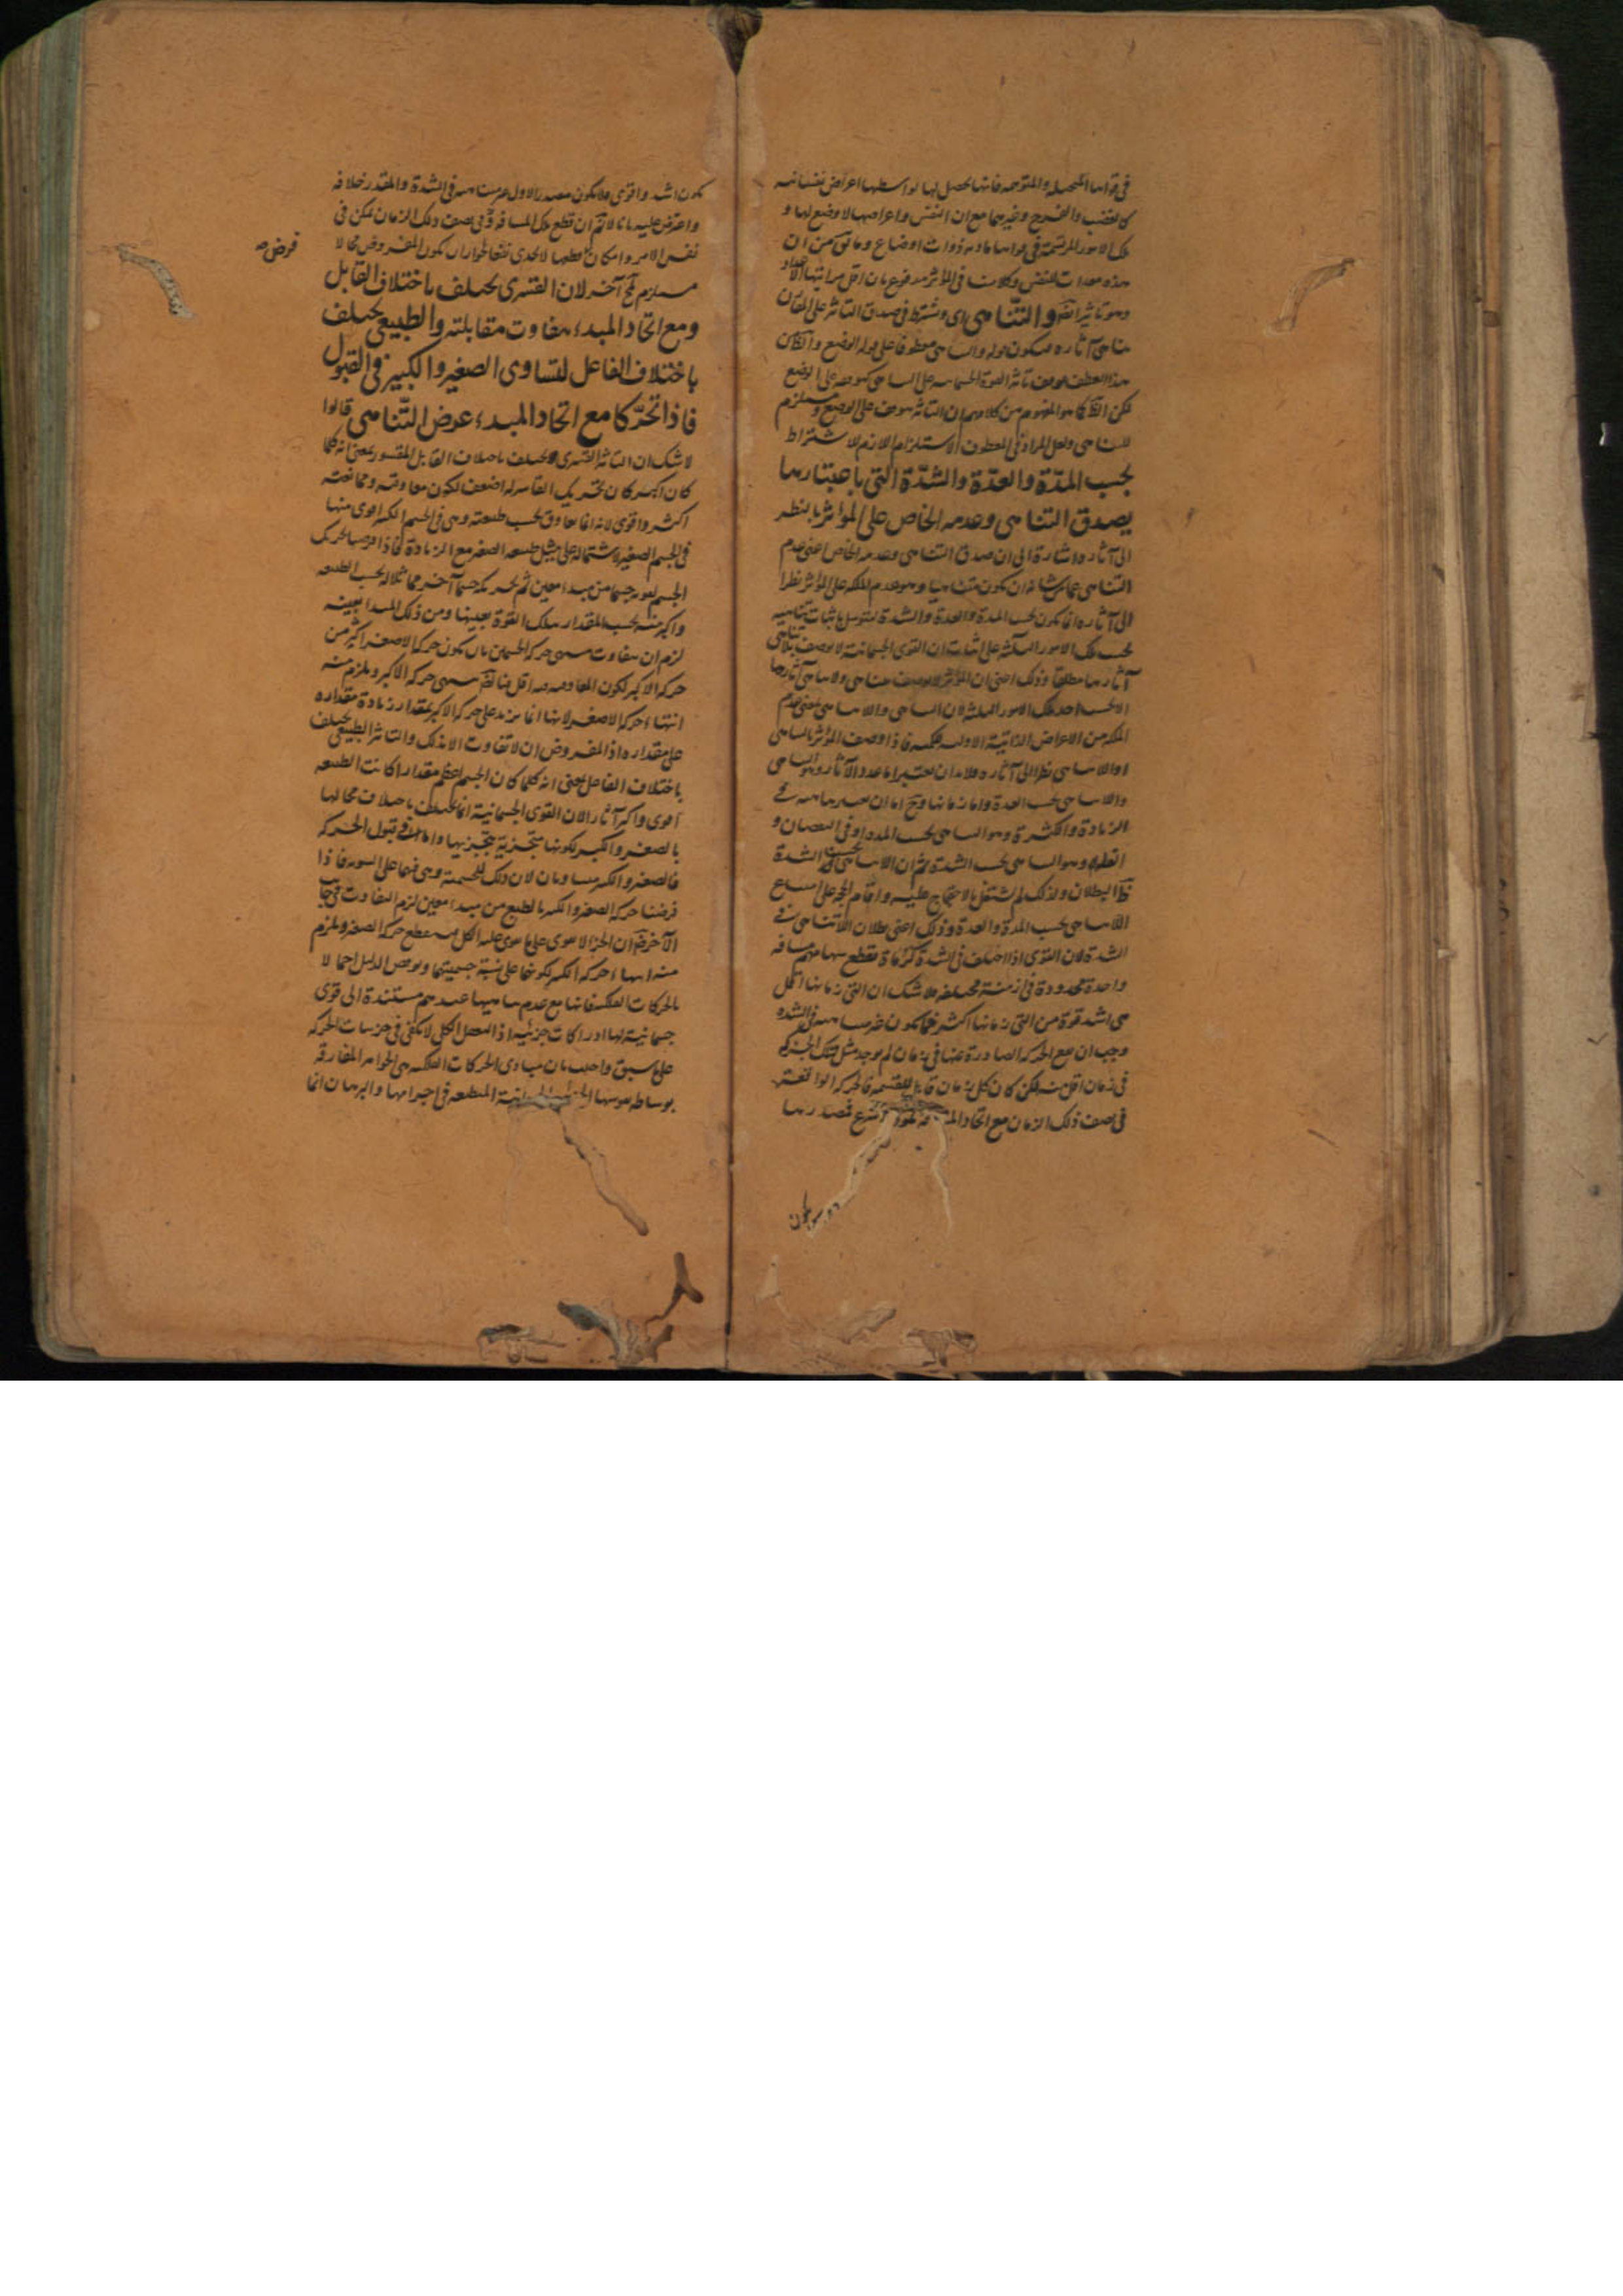 في قواها المتخيلة والمتوهمة فانها تحصل لها بواسطتها اعراض نفسانية
كالغضب والفرح وغيرهما مع ان النفس واعراضها لا وضع لها و
تلك الامور المرتسمة في قواها مادية ذوات اوضاع وما يق من ان
هذه معدات للنفس وكلامنا في المؤثر مدفوع بان اقل مراتبها الاعداد
وهو تاثير ايضا والتناهى اى وشترط في صدق التاثير على المقارن
تناهى آثاره فيكون قوله والتناهى معطوفا على قوله الوضع والظ من
هذا العطف توقف تاثير القوة الجسمانية على التناهى كتوقفه على الوضع
لكن الظ كما هو المفهوم من كلامهم ان التاثير متوقف على الوضع ومستلزم
للتناهى ولعل المراد في المعطوف الاستلزام اللازم للاشتراط
بحسب المدّة والعدّة والشدّة التى باعتبارها
يصدق التناهى وعدمه الخاص على المؤثر بالنظر
الى آثاره اشارة الى ان صدق التناهى وعدمه الخاص اعنى عدم
التناهى عما من شانه ان يكون متناهيا وهو عدم الملكة على المؤثر نظرا
الى آثاره انما يكون بحسب المدة والعدة والشدة ليتوسل باثبات تناهيه
بحسب تلك الامور الثلثة على اثبات ان القوى الجسمانية لا يوصف بلا تناهى
آثارها مطلقا وذلك اعنى ان المؤثر لا يوصف بتناهى ولا تناهى آثارها
الا بحسب احد تلك الامور الثلثة لان التناهى واللاتناهى بمعنى عدم
الملكة من الاعراض الذاتية الاولية للكم فاذا وصف المؤثر بالتناهى
او اللاتناهى نظرا الى آثاره فلا بد ان يعتبر اما عدد الآثار وهو التناهى
واللاتناهى بحسب العدة واما زمانها وح اما ان يعتبر تناهيه في
الزيادة والكثرة وهو التناهى بحسب المدة او في النقصان و
القلة وهو التناهى بحسب الشدة ثم ان اللاتناهى بحسب الشدة
ظ البطلان ولذلك لم يشتغل بالاحتجاج عليه واقام الحجة على امتناع
اللاتناهى بحسب المدة والعدة وذلك اعنى بطلان اللاتناهى في
الشدة لان القوى اذا اختلف في الشدة كرماة تقطع سهامهم مسافة
واحدة محدودة في ازمنة مختلفة فلا شك ان التى زمانها اقل
هى اشد قوة من التى زمانها اكثر فما يكون غير متناهية في الشدة
وجب ان يقع الحركة الصادرة عنها في زمان لم يوجد مثل تلك الحركة
في زمان اقل منه لكن كان كل زمان قابلا للقسمة فالحركة الواقعة
في نصف ذلك الزمان مع اتحاد المسافة اسرع فمصدرها
يكون
يكون اشد واقوى فلا يكون مصدر الاول غير متناهية في الشدة والمقدر خلافه
واعترض عليه بانا لا نم ان قطع تلك المسافة في نصف ذلك الزمان ممكن في
نفس الامر وامكان قطعها لا يجدى نفعا لجواز ان يكون المفروض محالا
فرض صح
مستلزم لمح آخر لان القسرى يختلف باختلاف القابل
ومع اتحاد المبدء يتفاوت مقابلته والطبيعى يختلف
باختلاف الفاعل لتساوى الصغير والكبير في القبول
فاذا تحرّكا مع اتحاد المبدء عرض التّناهى قالوا
لا شك ان التاثير القسرى يختلف باختلاف القابل المقسور بمعنى انه كلما
كان اكبر كان تحريك القاسر له اضعف لكون معاوقته وممانعته
اكثر واقوى لانه انما يعاوق بحسب طبيعته وهى في الجسم الكبير اقوى منها
في الجسم الصغير لاشتماله على مثل طبيعة الصغير مع الزيادة فاذا فرضنا تحريك
الجسم بقوته جسما من مبدء معين ثم تحريكه جسما آخر مماثلا له بحسب الطبيعة
واكبر منه بحسب المقدار بتلك القوة بعينها ومن ذلك المبدا بعينه
لزم ان يتفاوت منتهى حركة الجسمين بان يكون حركة الاصغر اكثر من
حركة الاكبر لكون المعاوقة فيه اقل فبالضرورة ينتهى حركة الاكبر ويلزم منه
انتهاء حركة الاصغر لانها انما يزيد على حركة الاكبر بمقدار زيادة مقداره
على مقداره اذ المفروض ان لا تفاوت الا بذلك والتاثير الطبيعى يختلف
باختلاف الفاعل بمعنى انه كلما كان الجسم اعظم مقدارا كانت الطبيعة
اقوى واكبر آثارا لان القوى الجسمانية انما يختلف باختلاف محالها
بالصغر والكبر لكونها متجزية بتجزيها واما في قبول الحركة
فالصغير والكبير متساويان لان ذلك للجسمية وهى فيهما على السوية فاذا
فرضنا حركة الصغير والكبير بالطبع من مبدء معين لزم التفاوت في جانب
الآخر ضرورة ان الجزء لا يقوى على ما يقوى عليه الكل فينقطع حركة الصغير ويلزم
منه انتهاء حركة الكبير لكونهما على نسبة جسميتهما ونوقض الدليل اجمالا
بالحركات الفلكية فانها مع عدم تناهيها عندهم مستندة الى قوى
جسمانية لها ادراكات جزئية اذ التعقل الكلى لا يكفى في جزئيات الحركة
على ما سبق واجيب بان مبادى الحركات الفلكية هى الجواهر المفارقة
بوساطة نفوسها الجسمانية المنطبعة في اجرامها والبرهان انما